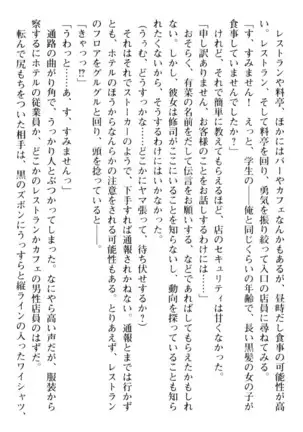 レストランや料亭、ほかにはバーやカフェなんかもあるが、昼時だし食事の可能性が
高い。レストラン、そして料亭を回り、勇気を振り絞って入口の店員に尋ねてみる。
「す、すみません！　えっと、学生の――俺と同じくらいの年齢で、長い黒髪の女の子が
食事していませんでしたか？」
　けれど、それで簡単に教えてもらえるほど、店のセキュリティは甘くなかった。
「申し訳ありません、お客様のことをお話しするわけには――」
　おそらく、有菜の名前をだして伝言をお願いする、などであればしてもらえたかもしれ
ない。しかし、彼女は修司がここにいることも知らないし、動向を探っていることも知ら
れたくないから、そうするわけにはいかなかった。
（ううむ、どうすっかな……どこかにヤマ張って、待ち伏せするか？）
　それはそれでストーカーのようで、下手すれば通報されかねない。通報とまでは行かず
とも、ホテルのほうからなんらかの注意をされる可能性もある。とりあえず、レストラン
のフロアをグルグルと回り、頭を捻っていると――。
「きゃっっ！？」
「うわっと……あ、す、すみませんっ」
　通路の曲がり角で、うっかり人とぶつかってしまった。なにやら高い声だが、服装から
察するにホテルの従業員か、どこかのレストランかカフェの男性店員のはずだ。
　転んで尻もちをついた相手は、黒のズボンにうっすらと縦ラインの入ったワイシャツ、